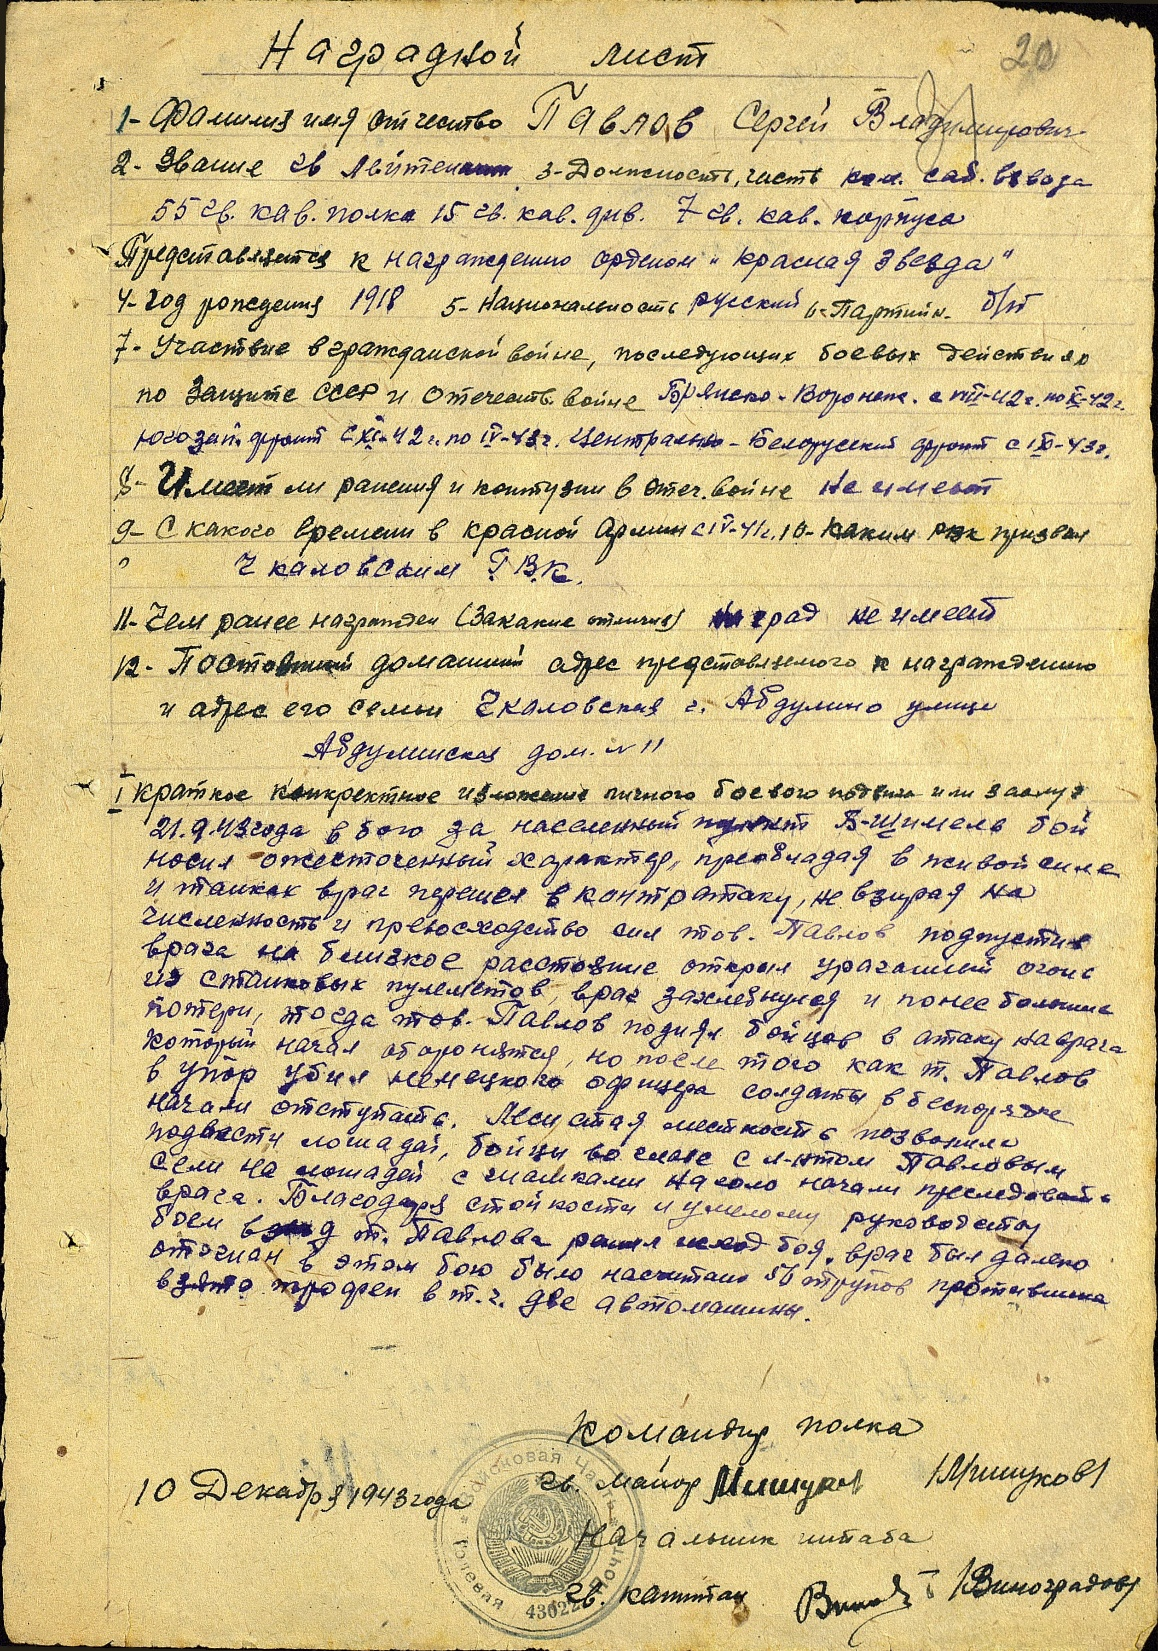 Наградной лист
20
1- Фамилия имя отчество Павлов Сергей Владимирович
2- Звание гв Лейтенант 3- Должность, часть ком. саб. взвода
55 гв. кав. полка 15 гв. кав. див. 7 гв. кав. корпуса
Представляется к награждению орденом "Красная Звезда"
4- год рождения 1918 5- Национальность русский 6- Партийн. б/п
7- Участие в гражданской войне, последующих боевых действиях
по защите СССР и отечеств. войне Брянско-Воронеж. с VII-42 г. по X-42 г.
югозап. фронт с XI-42 г. по IV-43 г. Центрально-Белорусский фронт с 43 г.
8- Имеет ли ранения и контузии в отеч. войне не имеет
9- С какого времени в красной Армии с IV-41 г. 10- Каким рвк призван
Чкаловским Г.В.К.
11- Чем ранее награжден (за какие отличия) наград не имеет
12- Постоянный домашний адрес представляемого к награждению
и адрес его семьи Чкаловская г. Абдулино улица
Абдулинская дом. N 11
I краткое конкретное изложение личного боевого подвига или заслуг
21.9.43 года в бою за населенный пункт В-Шимель бой
носил ожесточенный характер, преобладая в живой силе
и танках враг перешел в контратаку, не взирая на
численность и превосходство сил тов. Павлов подпустив
врага на близкое расстояние открыл ураганный огонь
из станковых пулеметов, враг захлебнулся и понес большие
потери, тогда тов. Павлов поднял бойцов в атаку на врага
который начал оборонятся, но после того как т. Павлов
в упор убил немецкого офицера солдаты в беспорядке
начали отступать. Лесистая местность позволила
подвести лошадей, бойцы во главе с л-нтом Павловым
сели на лошадей с шашками наголо начали преследовать
врага. Благодаря стойкости и умелому руководству
боем взвод т. Павлова решил исход боя. враг был далеко
отогнан в этом бою было насчитано 56 трупов противника
взято трофеи в т.ч. две автомашины.
Командир полка
гв. майор Мишуков /Мишуков/
10 Декабря 1943 года
Начальник штаба
гв. капитан /Виноградов/
Войсковая Часть
Полевая Почта
43022